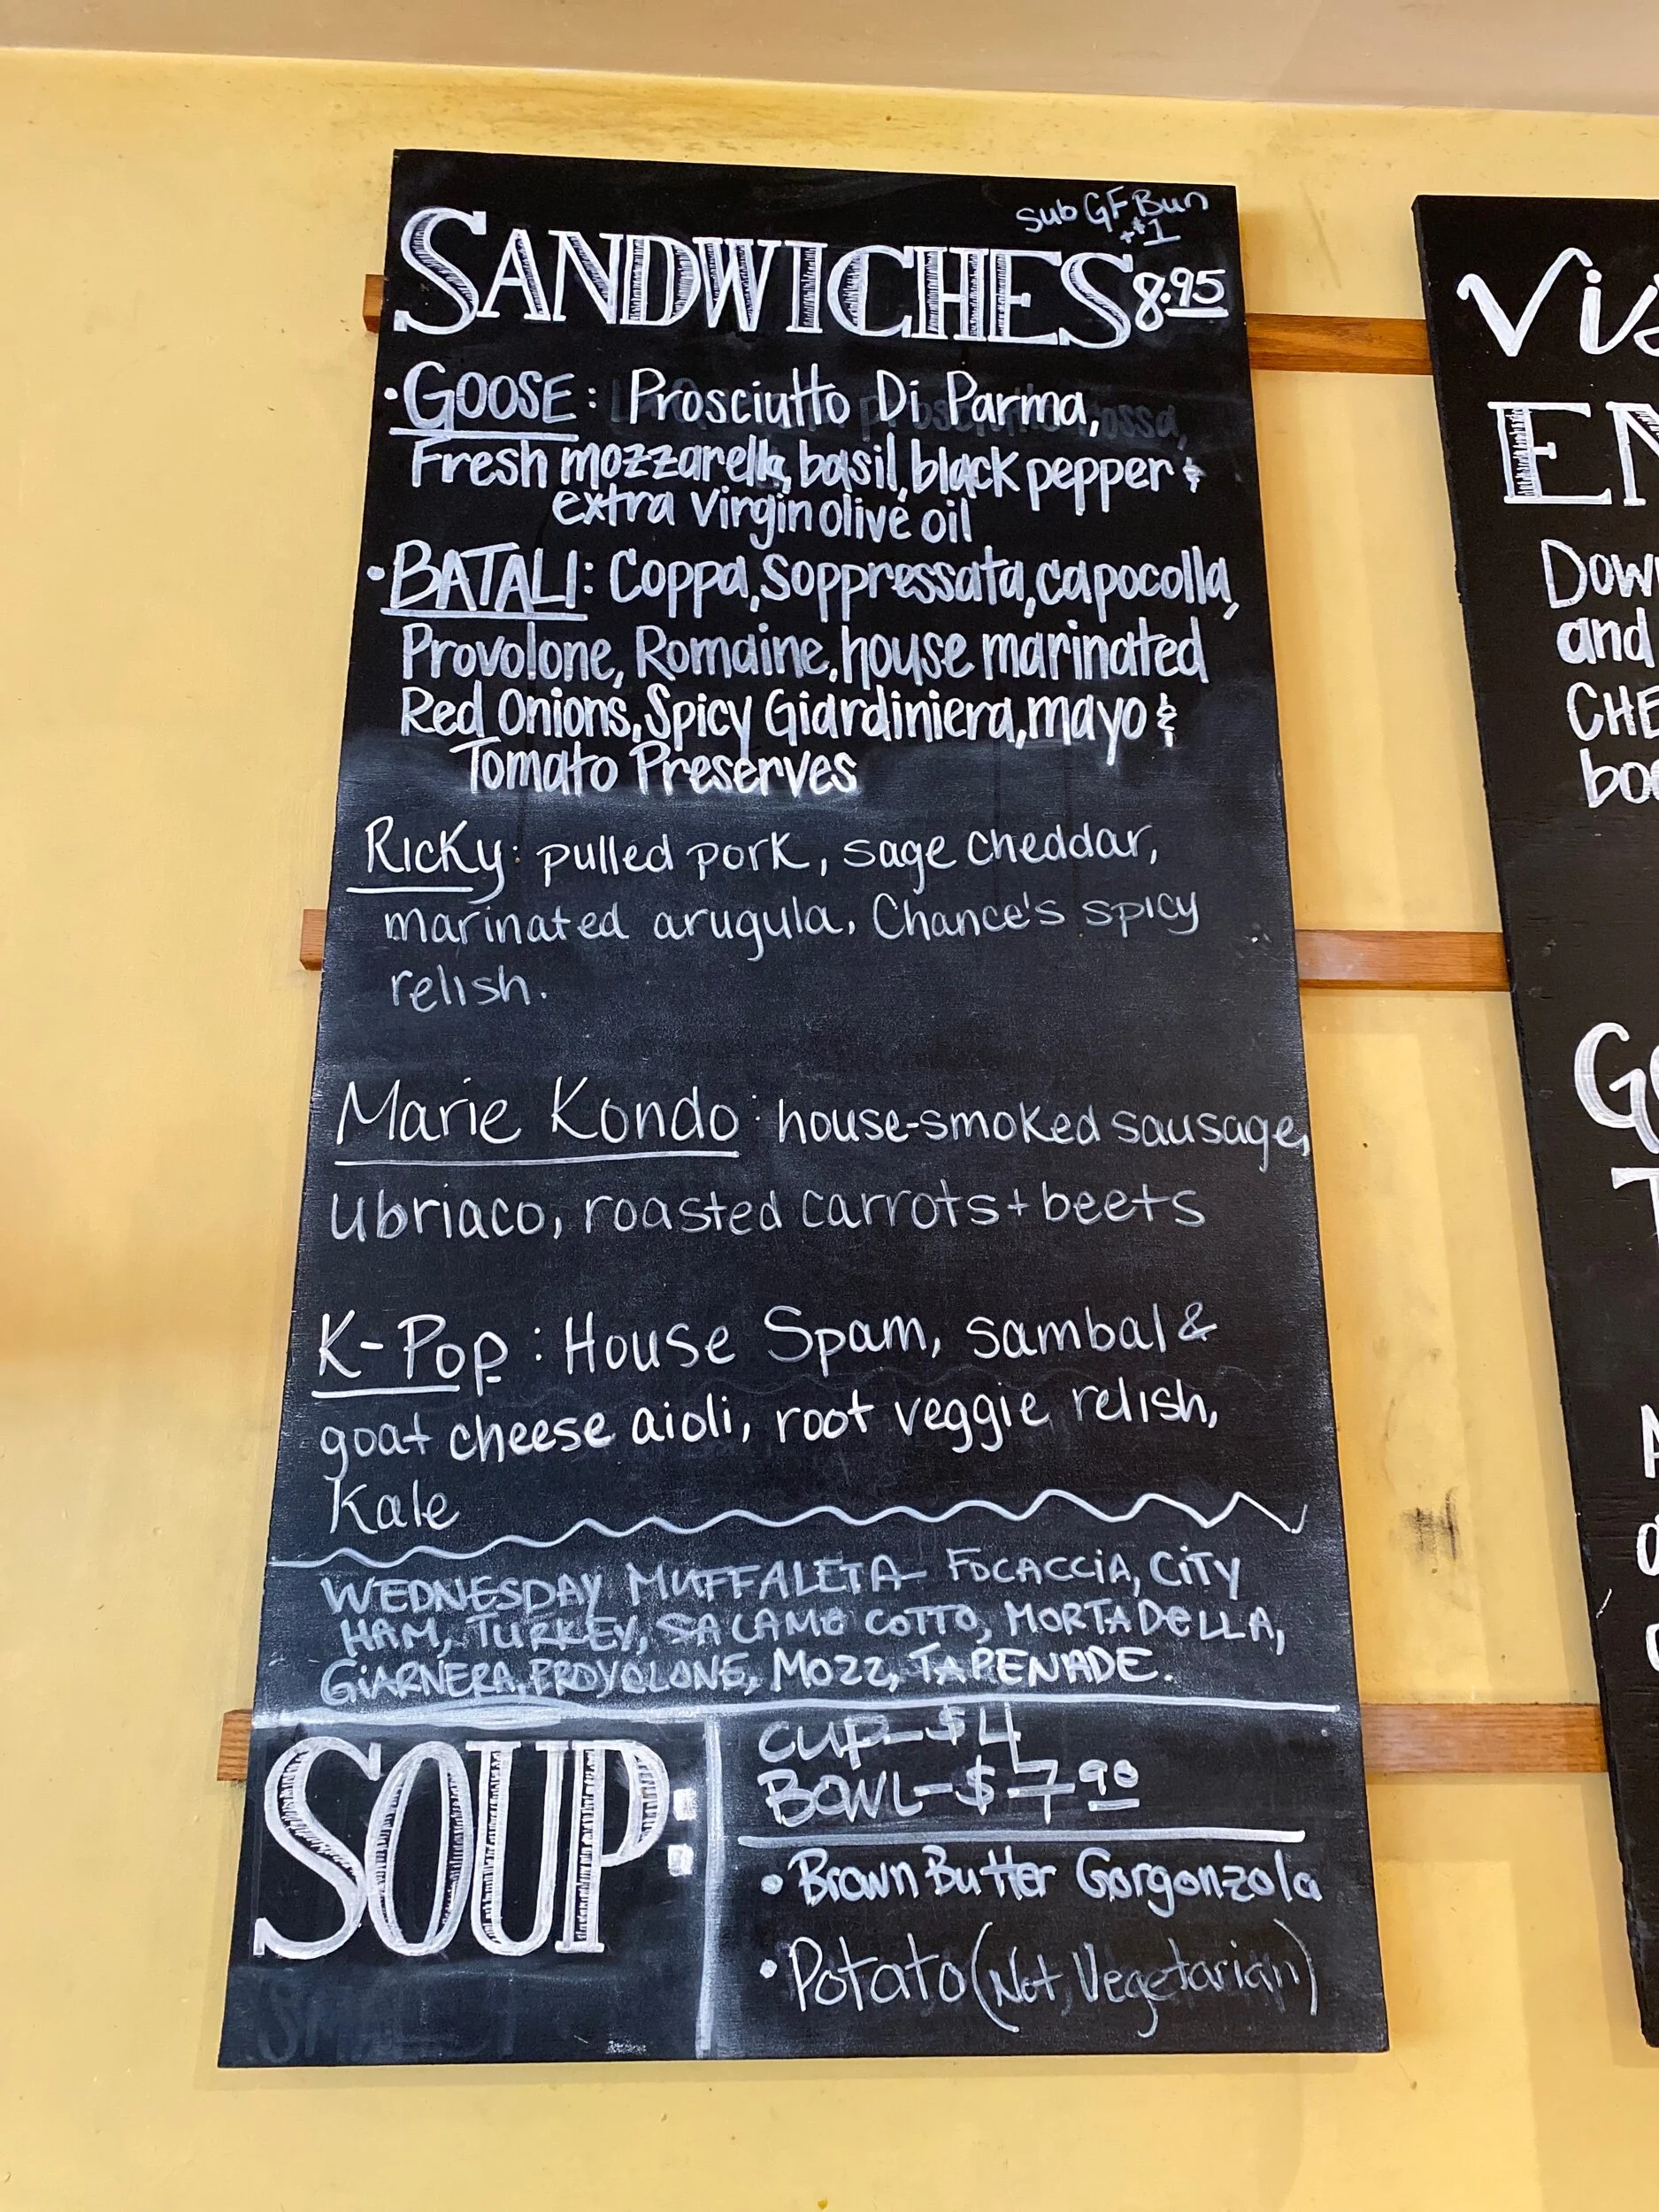 Sub GF Bun
+$1
SANDWICHES 8.95
• GOOSE: Prosciutto Di Parma,
Fresh mozzarella, basil, black pepper &
extra virgin olive oil
• BATALI: Coppa, Soppressata, capocolla,
Provolone, Romaine, house marinated
Red Onions, Spicy Giardiniera, mayo &
Tomato Preserves
Ricky: pulled pork, sage cheddar,
marinated arugula, Chance's spicy
relish.
Marie Kondo: house-smoked sausage,
Ubriaco, roasted carrots + beets
K-Pop: House Spam, sambal &
goat cheese aioli, root veggie relish,
Kale
WEDNESDAY MUFFALETA- FOCACCIA, CITY
HAM, TURKEY, SALAME COTTO, MORTADELLA,
GIARNERA, PROVOLONE, MOZZ, TAPENADE.
SOUP:
CUP-$4
BOWL-$7.90
• Brown Butter Gorgonzola
• Potato (Not Vegetarian)
Vis
EN
Dow
and
CHE
boa